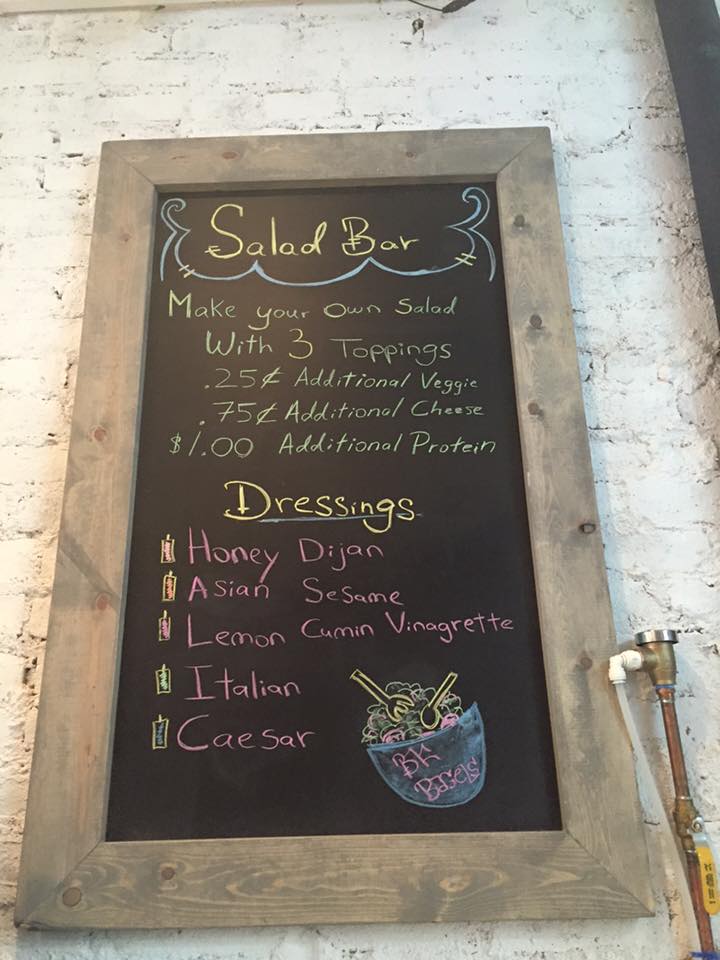 Salad Bar
Make your own salad
With 3 Toppings
.25¢ Additional Veggie
.75¢ Additional Cheese
$1.00 Additional Protein
Dressings
Honey Dijan
Asian Sesame
Lemon Cumin Vinagrette
Italian
Caesar
BK